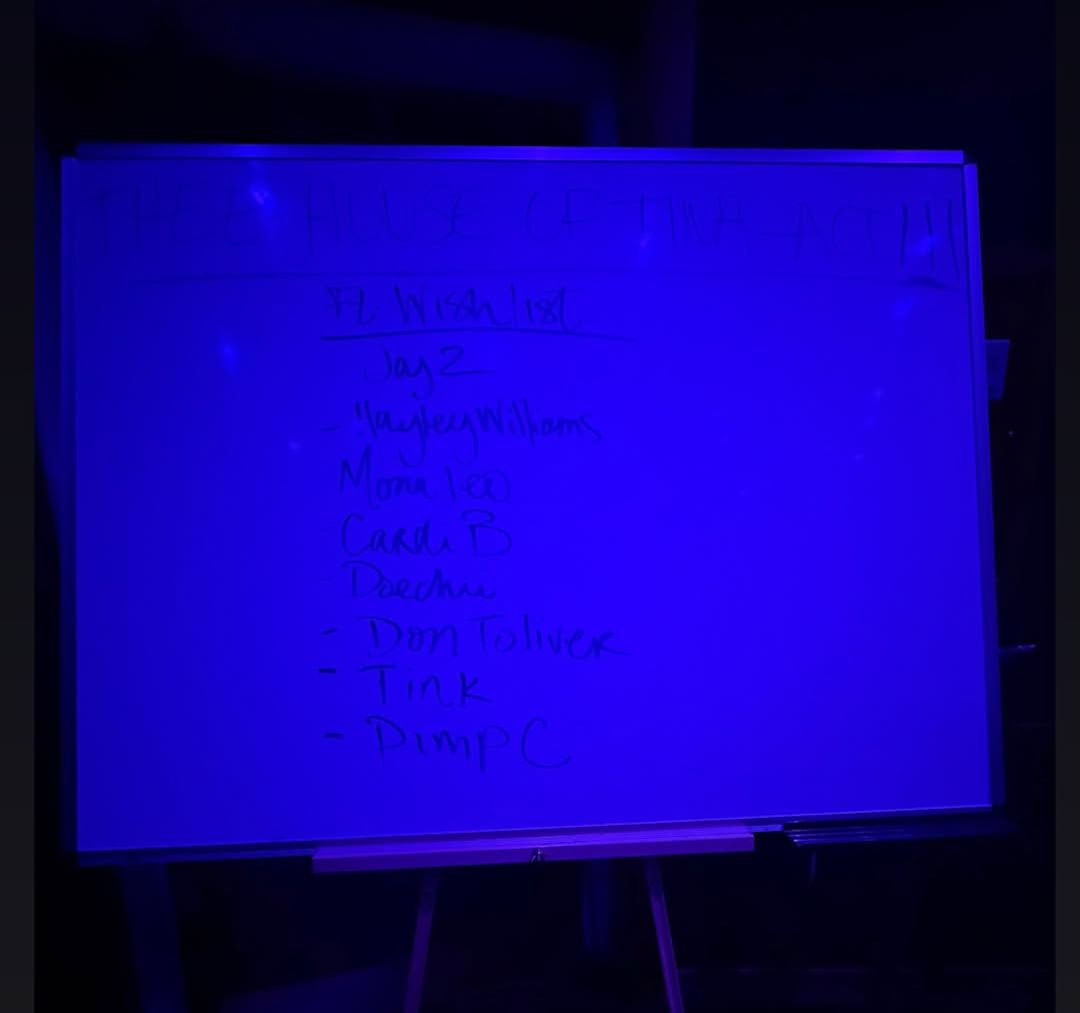 THEE HOUSE OF TINA - ACT III
Ft Wishlist
Jay Z
- Hayley Williams
Mona Leo
Cardi B
- Doechii
- Don Toliver
- Tink
- Pimp C